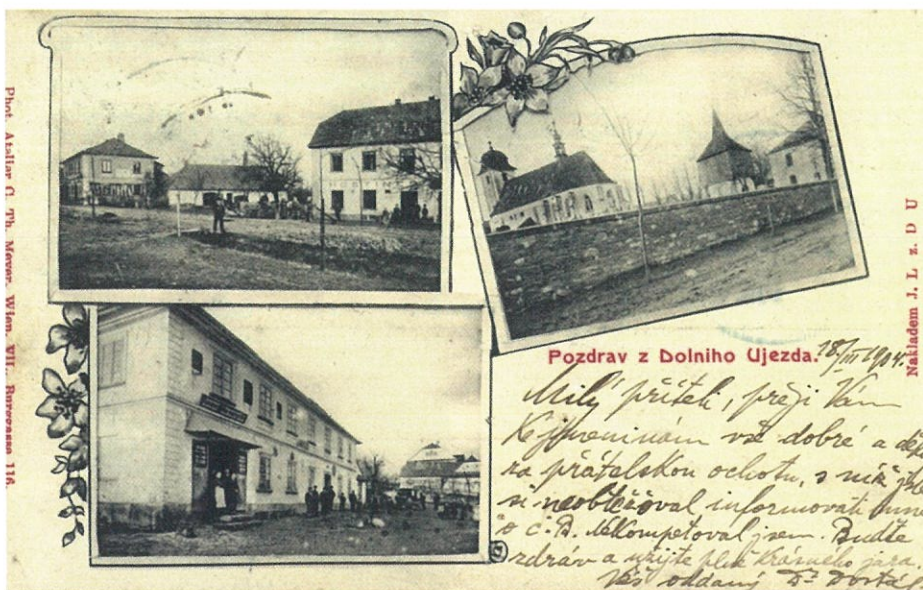 Phot. Atelier C. Th. Meyer, Wien, VII. Burggasse 116.
Nakladem J. L z. D U
Pozdrav z Dolniho Ujezda.
18/III 1904
Milý příteli, přeji Vám
k jmeninám vše dobré a
za přátelskou ochotu, s níž jste
si neobtěžoval informovati mne
o č. B. Nekompetoval jsem. Buďte
zdráv a užijte plně krásného jara.
Váš oddaný Dr Dostál